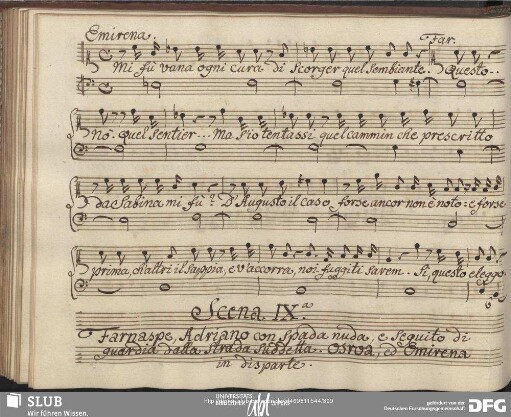 Emirena. Far.
Mi fù vana ogni cura di scorger quel sembiante. Questo..
Nò. Quel sentier... Ma s'io tentassi quel cammin che prescritto
da Sabina mi fù? D'Augusto il caso forse ancor non è noto: e forse
prima, ch'altri il sappia, e v'accorra, noi fuggiti sarem. Sì, questo eleggo.
Scena IX.a
Farnaspe, Adriano con spada nuda, e seguito di
guardia dalla strada suddetta. Osroa, ed Emirena
in disparte.
SLUB
Wir führen Wissen.
DFG
gefördert von der
Deutschen Forschungsgemeinschaft